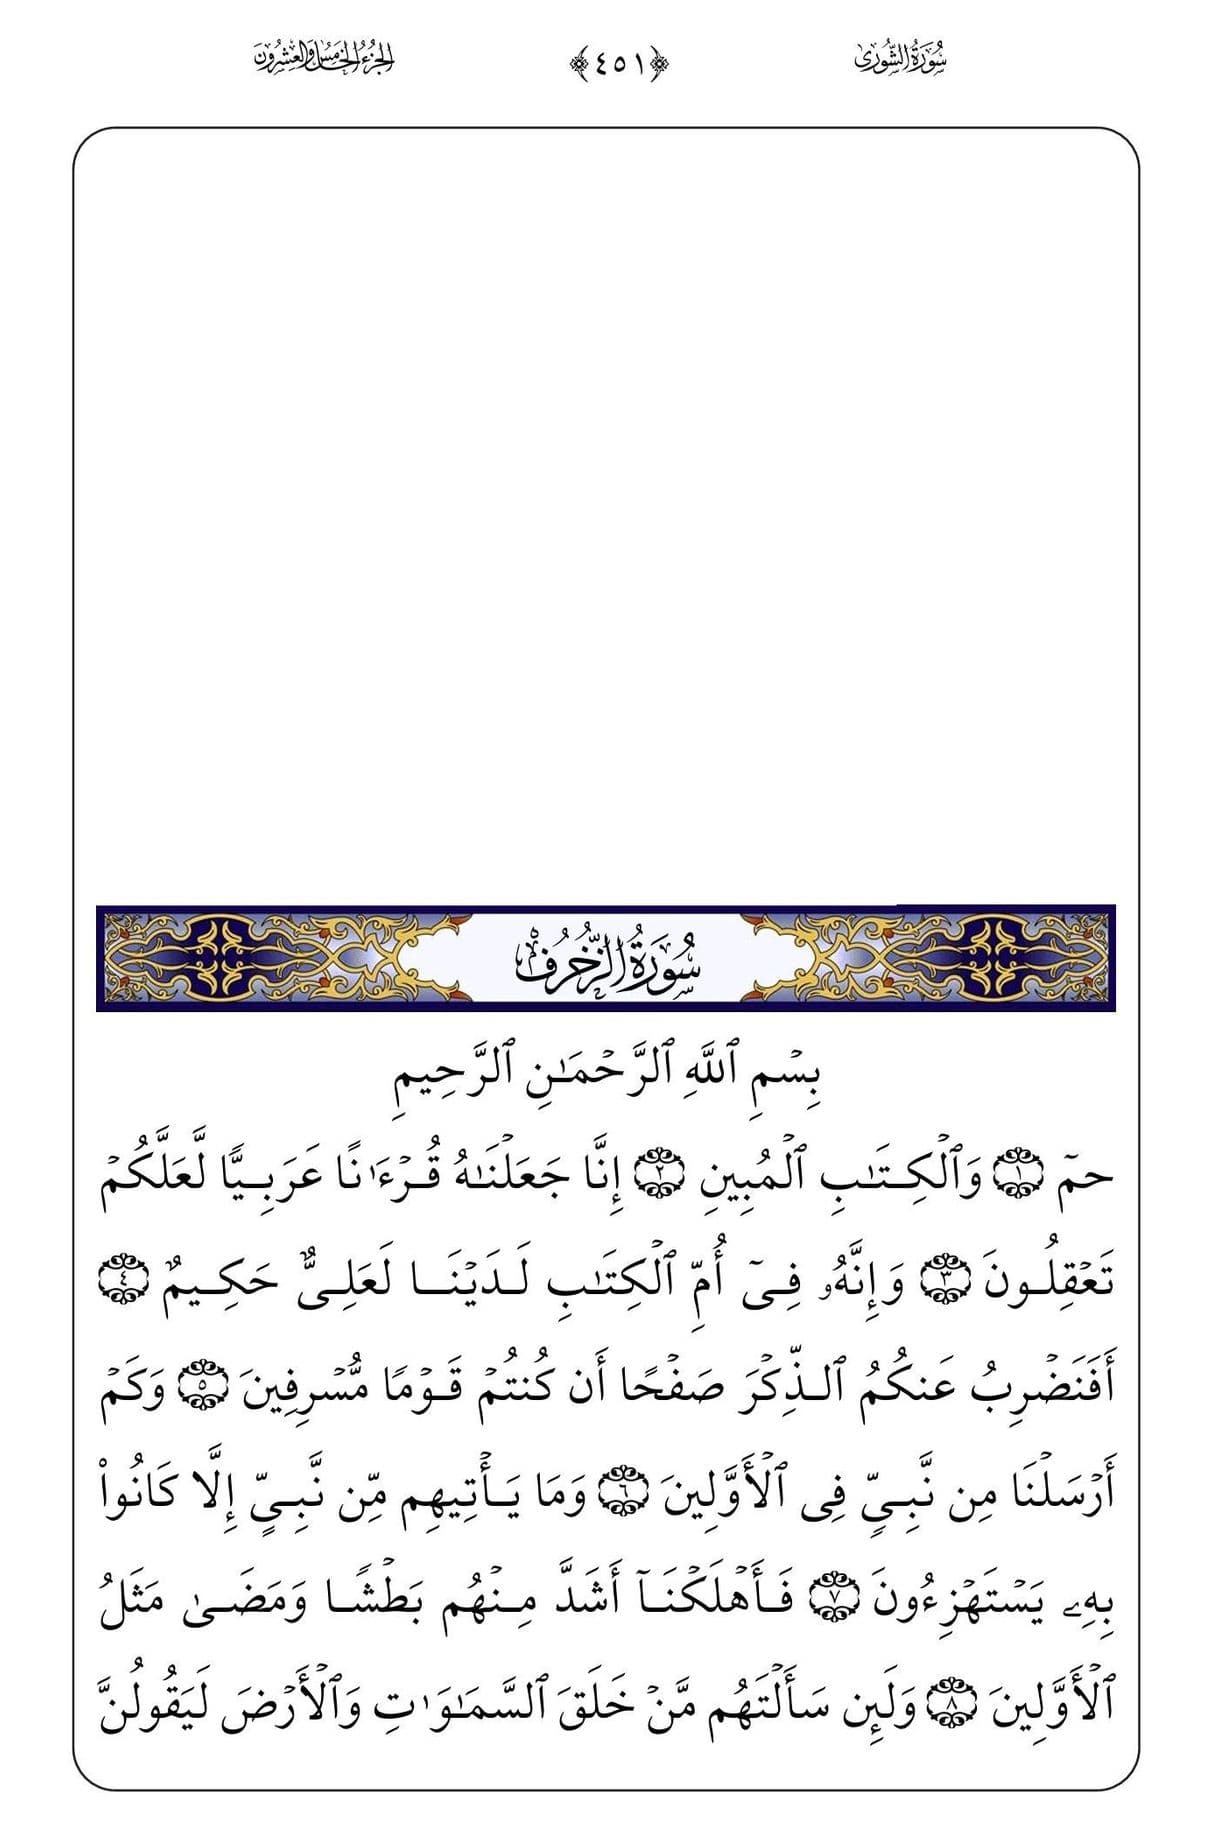 سُورَةُ الشُّورَىٰ ﴿٤٥١﴾ الجُزْءُ الخَامِسُ وَالعِشْرُونَ
سُورَةُ الزُّخْرُفِ
بِسْمِ ٱللَّهِ ٱلرَّحْمَـٰنِ ٱلرَّحِيمِ
حمٓ ١ وَٱلْكِتَـٰبِ ٱلْمُبِينِ ٢ إِنَّا جَعَلْنَـٰهُ قُرْءَٰنًا عَرَبِيًّا لَّعَلَّكُمْ
تَعْقِلُونَ ٣ وَإِنَّهُۥ فِىٓ أُمِّ ٱلْكِتَـٰبِ لَدَيْنَا لَعَلِىٌّ حَكِيمٌ ٤
أَفَنَضْرِبُ عَنكُمُ ٱلذِّكْرَ صَفْحًا أَن كُنتُمْ قَوْمًا مُّسْرِفِينَ ٥ وَكَمْ
أَرْسَلْنَا مِن نَّبِىٍّ فِى ٱلْأَوَّلِينَ ٦ وَمَا يَأْتِيهِم مِّن نَّبِىٍّ إِلَّا كَانُوا۟
بِهِۦ يَسْتَهْزِءُونَ ٧ فَأَهْلَكْنَآ أَشَدَّ مِنْهُم بَطْشًا وَمَضَىٰ مَثَلُ
ٱلْأَوَّلِينَ ٨ وَلَئِن سَأَلْتَهُم مَّنْ خَلَقَ ٱلسَّمَـٰوَٰتِ وَٱلْأَرْضَ لَيَقُولُنَّ